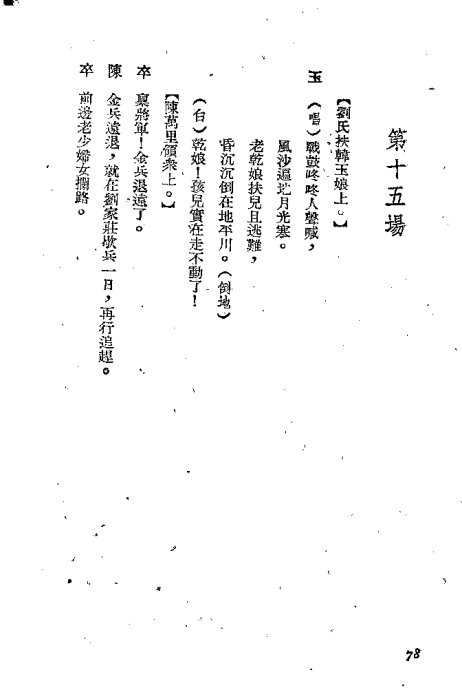 第十五場
【劉氏扶韓玉娘上。】
玉 （唱）戰鼓咚咚人聲喊，
風沙遍地月光寒。
老乾娘扶兒且逃難，
昏沉沉倒在地平川。（倒地）
（白）乾娘！孩兒實在走不動了！
【陳萬里領衆上。】
卒 稟將軍！金兵退遠了。
陳 金兵遠退，就在劉家莊歇兵一日，再行追趕。
卒 前邊老少婦女攔路。
78